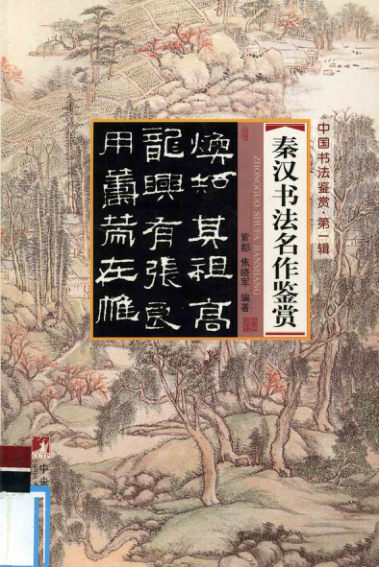 中国书法鉴赏·第一辑
【秦汉书法名作鉴赏】
ZHONGGUO SHUFA JIANSHANG
紫都 焦晓军 编著
焕知其祖高
龍興有張良
用籌策在帷
中央